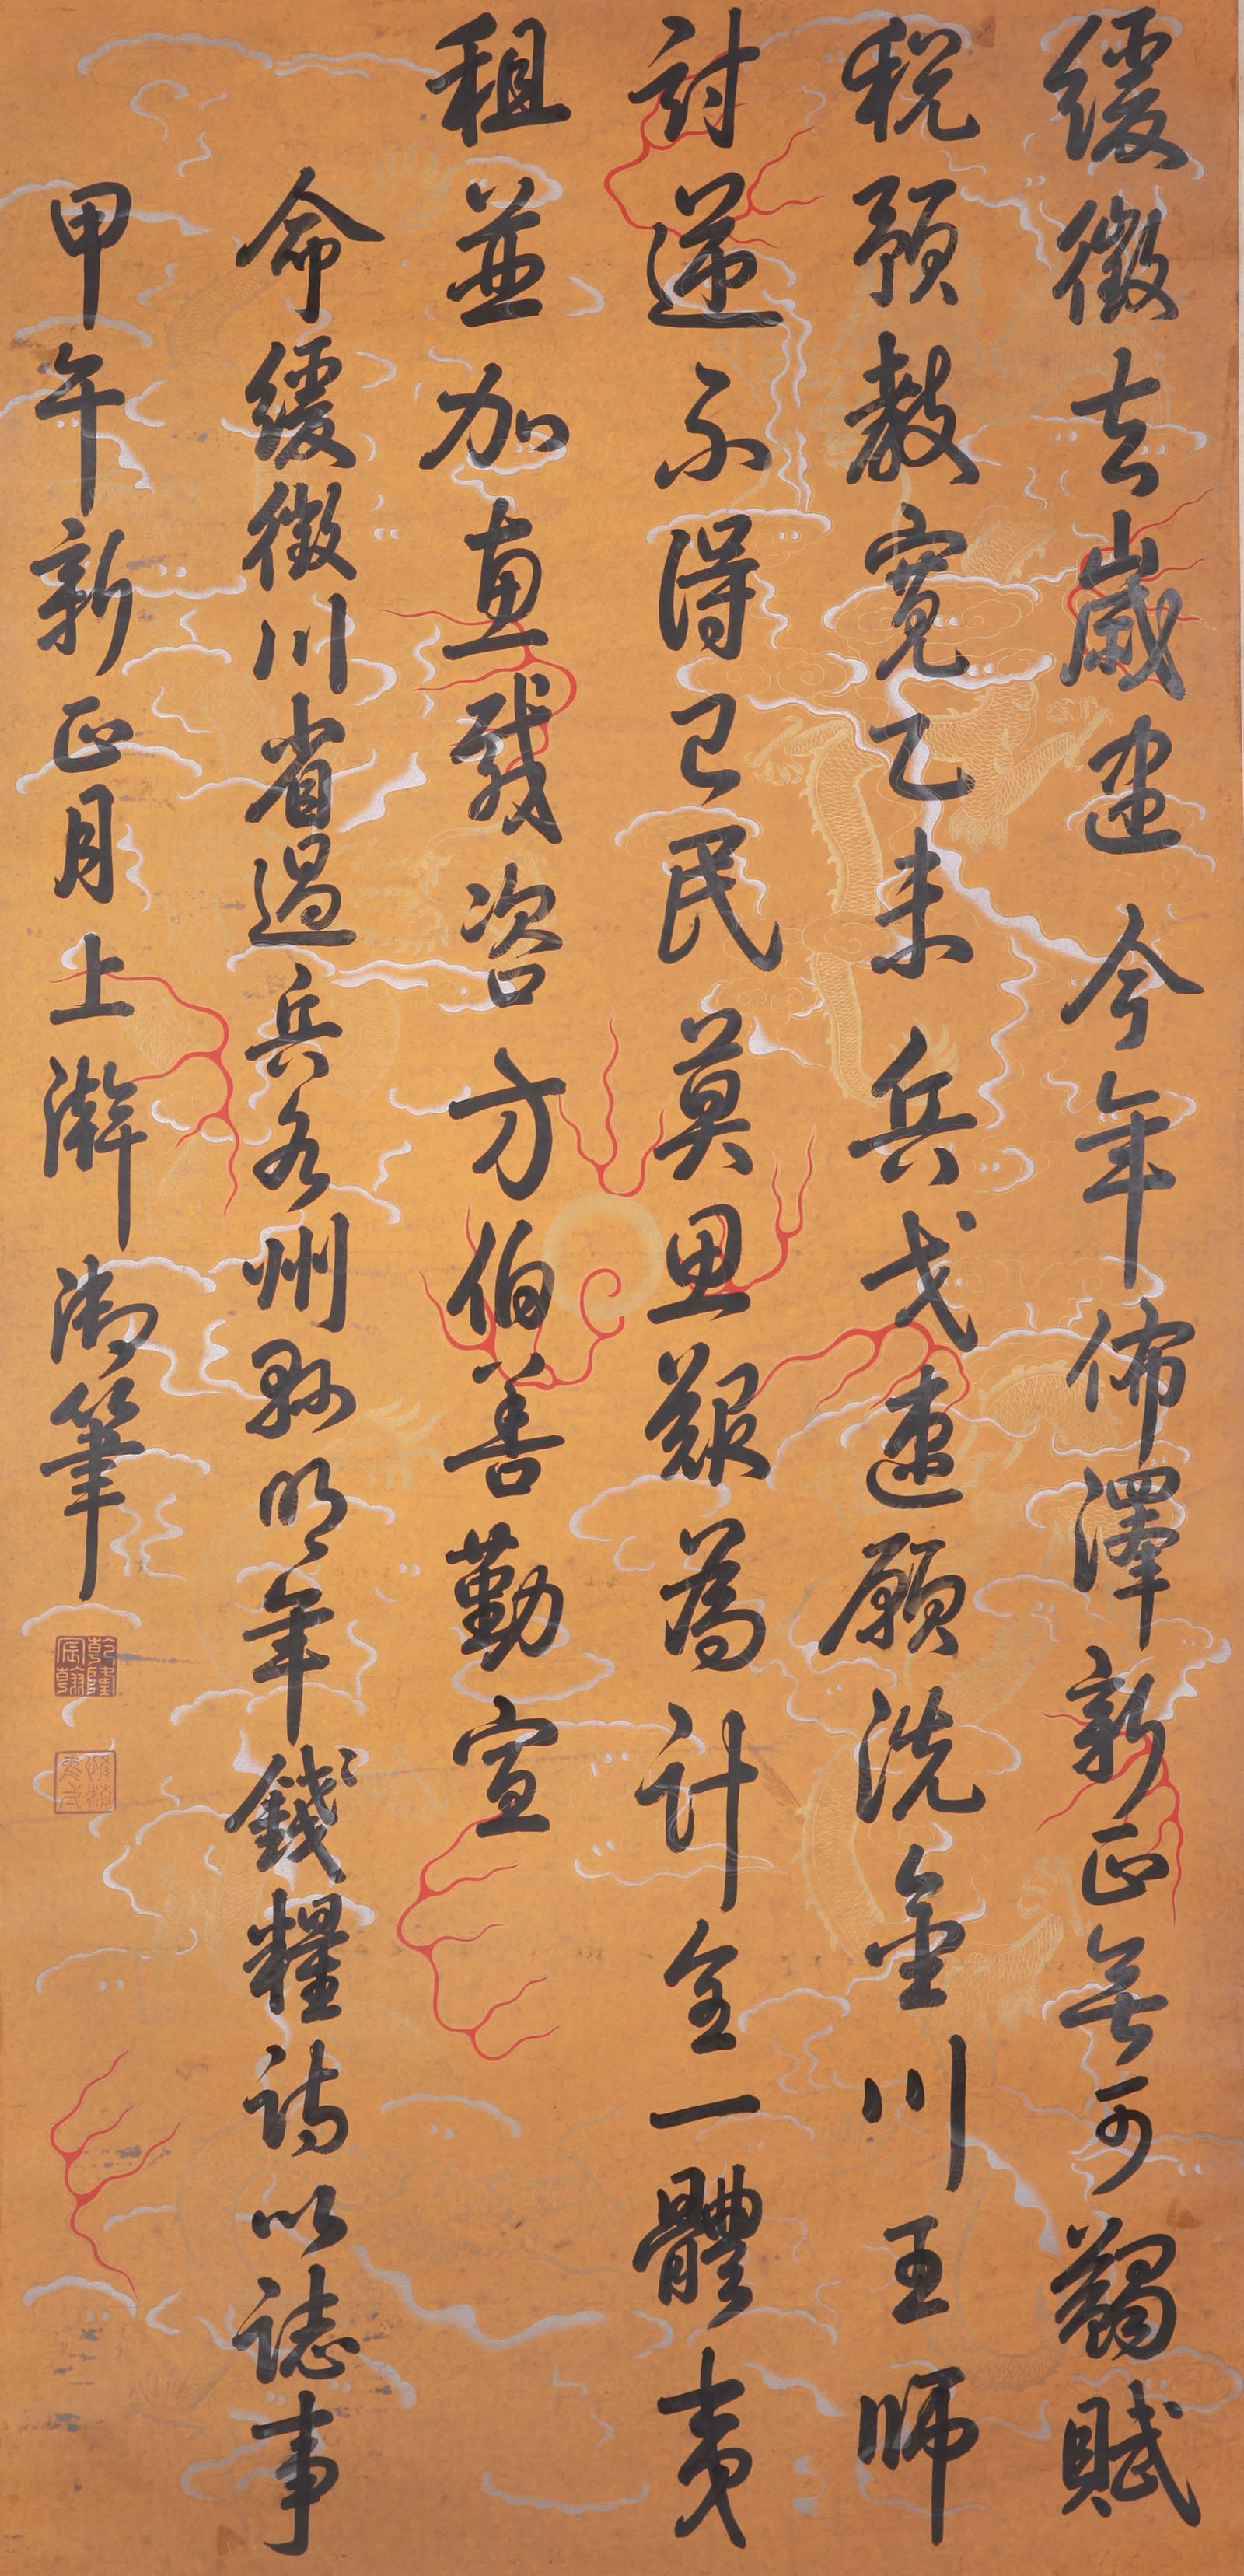 緩徵去歲逮今年佈澤新正無可蠲賦
稅預教寬乙未兵戈速願洗金川王師
討逆不得已民莫思艱為計全一體夷
租並加惠咨方伯善勤宣
命緩徵川省過兵各州縣明年錢糧詩以誌事
甲午新正月上澣御筆
乾隆宸翰